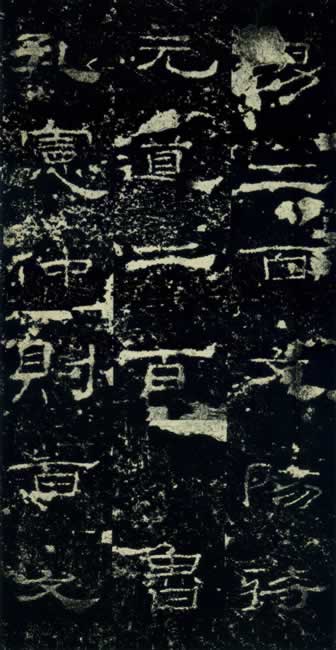 二百文陽蔣
元道二百魯
孔憲仲則百文